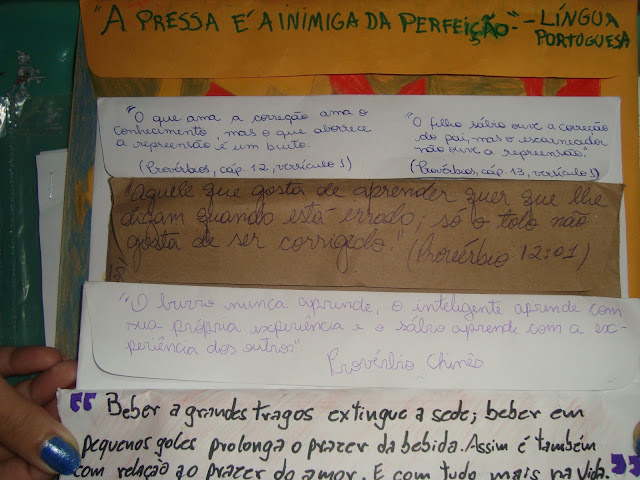 "A PRESSA É A INIMIGA DA PERFEIÇÃO." - LÍNGUA
PORTUGUESA
"O que ama a correção ama o
conhecimento, mas o que aborrece
a repreensão é um bruto.
(Provérbios, cáp. 12, versículo 1)
"O filho sábio ouve a correção
do pai, mas o escarnecedor
não ouve a repreensão."
(Provérbios, cáp. 13, versículo 1)
"aquele que gosta de aprender quer que lhe
digam quando está errado; só o tolo não
gosta de ser corrigido." (Provérbio 12:01)
"O burro nunca aprende, o inteligente aprende com
sua própria experiência e o sábio aprende com a ex-
periência dos outros"
Provérbio Chinês
"Beber a grandes tragos extingue a sede; beber em
pequenos goles prolonga o prazer da bebida. Assim é também
com relação ao prazer do amor. E com tudo mais na vida."